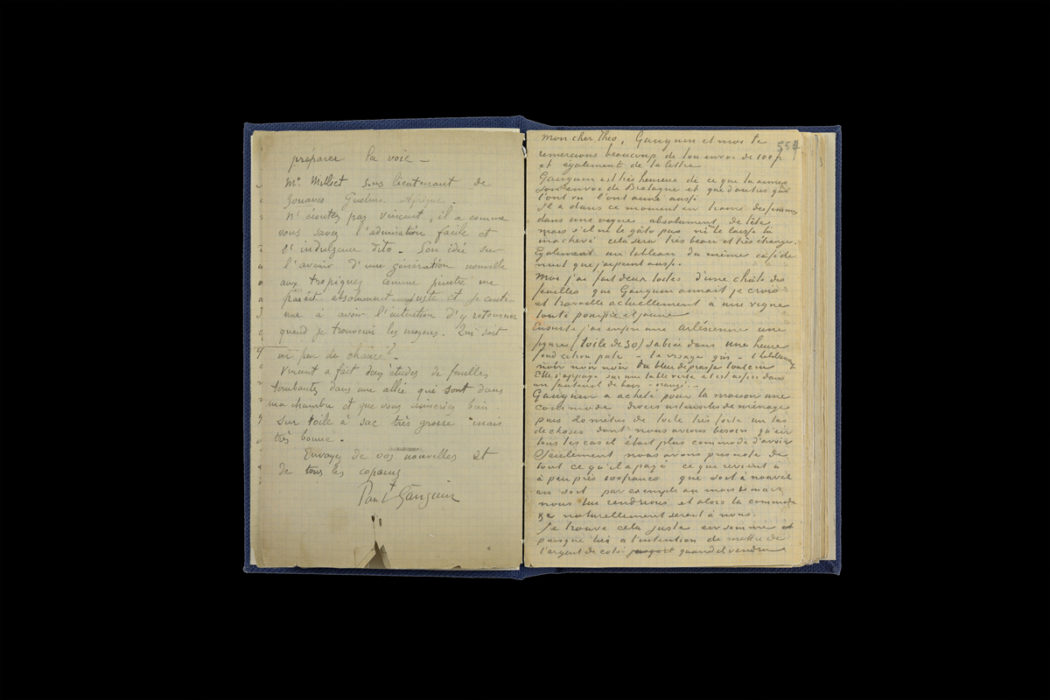 préparer la voie —
Mr Milliet sous lieutenant de
Zouaves Guelma Afrique.
N'écoutez pas Vincent, il a comme
vous savez l'admiration facile et
l'indulgence dito — Son idée sur
l'avenir d'une génération nouvelle
aux tropiques comme peintre me
parait absolument juste et je conti-
nue à avoir l'intention d'y retourner
quand je trouverai les moyens. Qui sait
un peu de chance?
Vincent a fait deux études de feuilles
tombantes dans une allée qui sont dans
ma chambre et que vous aimeriez bien
sur toile à sac très grosse mais
très bonne.
Envoyez de vos nouvelles et
de tous les copains
Paul Gauguin
557
mon cher Theo, Gauguin et moi te
remercions beaucoup de ton envoi de 100 fr
et egalement de ta lettre
Gauguin est très heureux de ce que tu aimes
son envoi de Bretagne et que d'autres qui
l'ont vu l'ont aimé aussi
Il a dans ce moment en train des femmes
dans une vigne absolument de tête
mais s'il ne le gâte pas ni ne le laisse là
inachevé cela sera très beau et très étrange.
Egalement un tableau du même café de
nuit que j'ai peint aussi.
Moi j'ai fait deux toiles d'une chûte des
feuilles que Gauguin aimait je crois
et travaille actuellement à une vigne
toute pourpre et jaune
Ensuite j'ai enfin une Arlésienne une
figure (toile de 30) sabrée dans une heure
fond citron pale – le visage gris – l'habillement
noir noir noir du bleu de prusse tout cru
Elle s'appuye sur une table verte et est assise dans
un fauteuil de bois orangé. —
Gauguin a acheté pour la maison une
commode divers ustensiles de ménage
puis 20 mètres de toile très forte un tas
de choses dont nous avions besoin qu'en
tous les cas il était plus commode d'avoir
Seulement nous avons pris note de
tout ce qu'il a payé ce que revient à
à peu près 100 francs que soit à nouvel
an soit par exemple au mois de mars
nous lui rendrions et alors la commode
&c naturellement serait à nous.
Je trouve cela juste en somme et
puisque lui a l'intention de mettre de
l'argent de coté quand il vendra